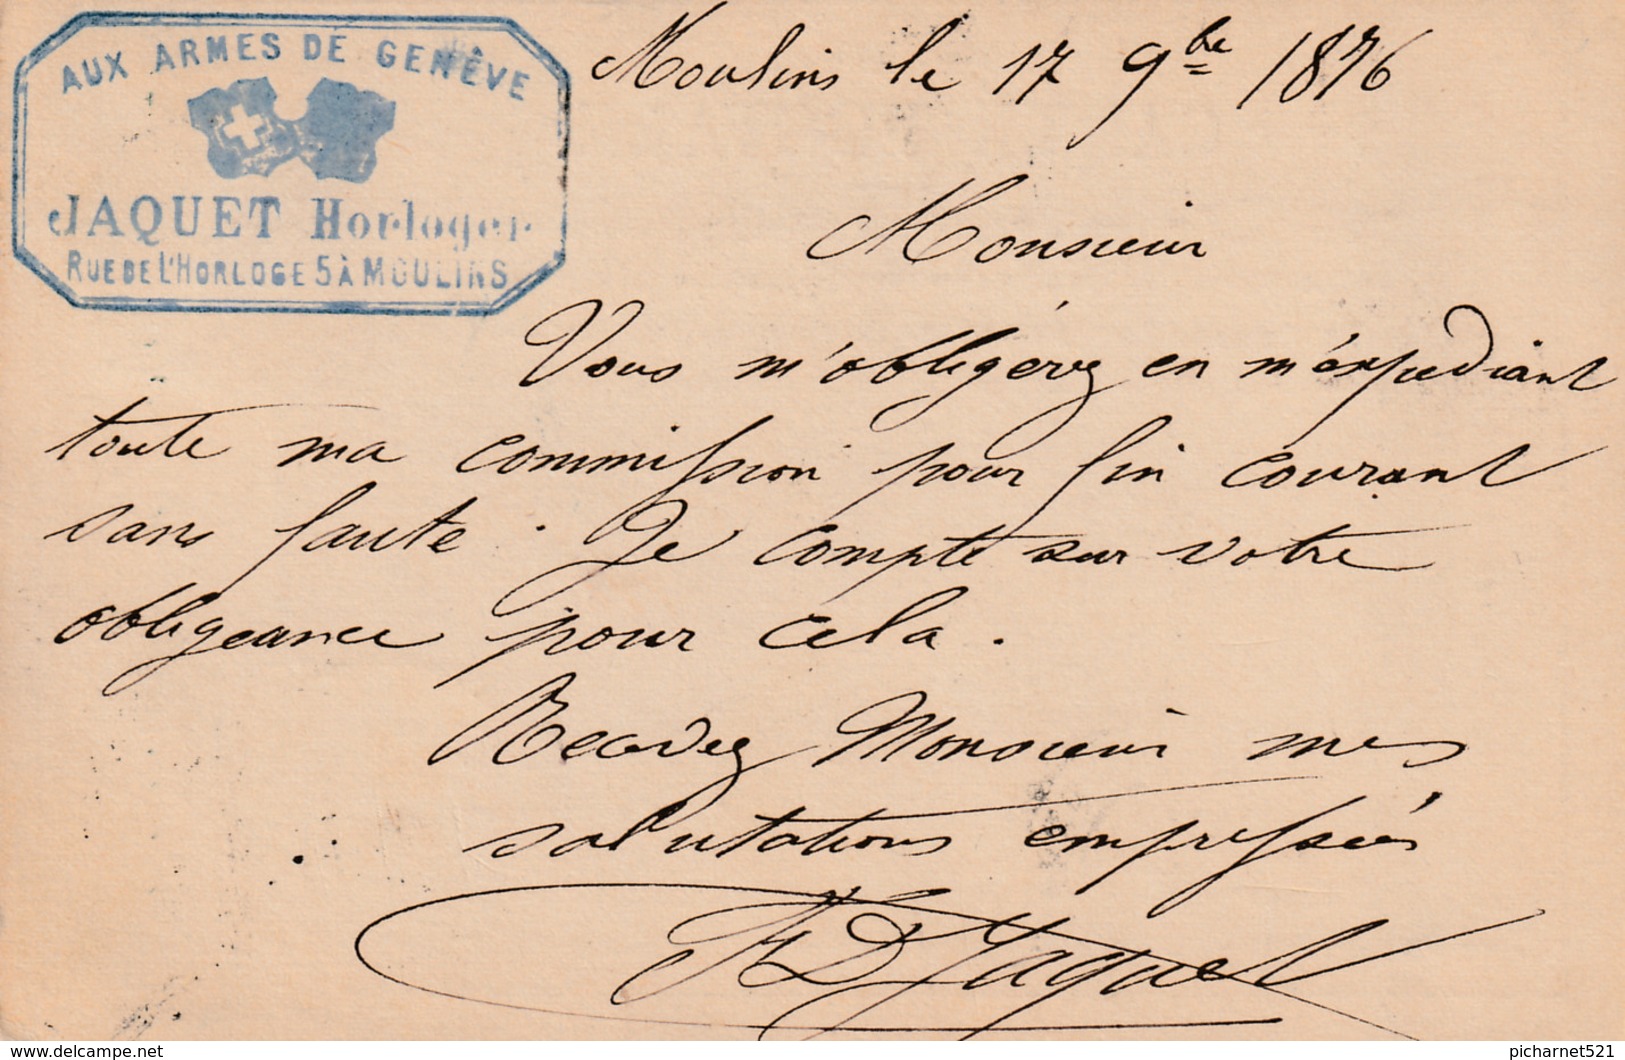 AUX ARMES DE GENÊVE
JAQUET Horloger
RUE DE L'HORLOGE 5 À MOULINS
Moulins le 17 9bre 1876
Monsieur
Vous m'obligérez en m'éxpediant
toute ma commission pour fin courant
sans faute. Je compte sur votre
obligeance pour cela.
Recevez Monsieur mes
salutations empressées
Jaquet
delcampe.net
picharnet521